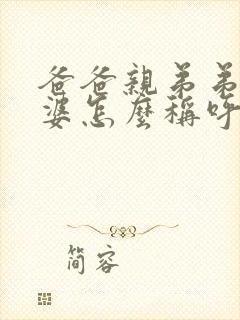 爸爸親弟弟
婆怎麼稱呼
简容